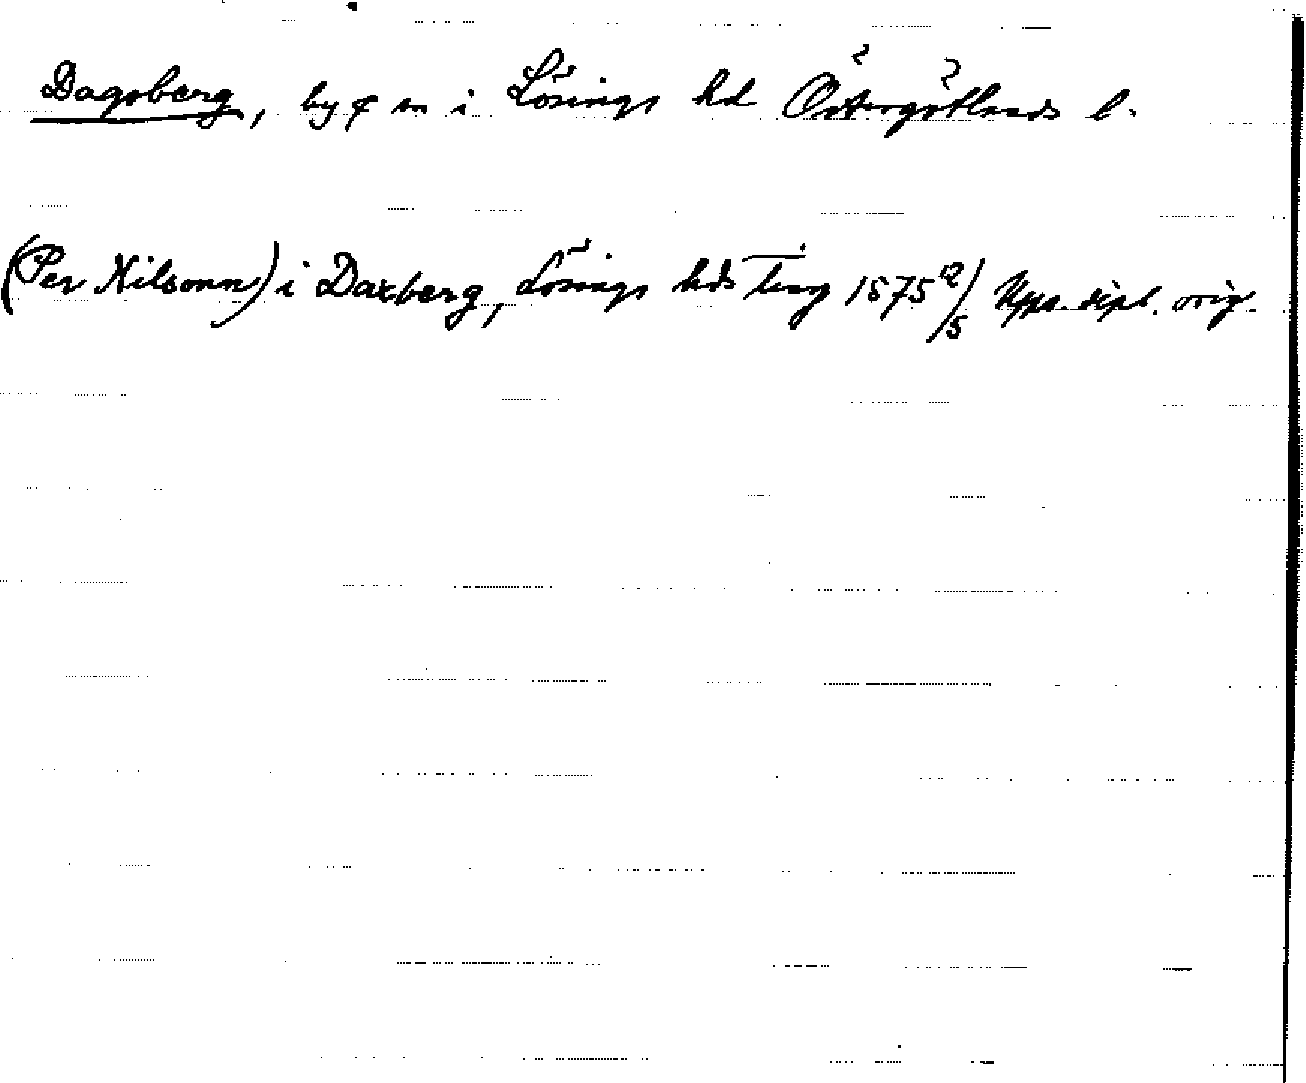 Dagsberg, by o sn i Lösings hd Östergötlands l.
(Per Nilsonn) i Daxberg, Lösings hds ting 1575 9/5 Upps. dipl. orig.